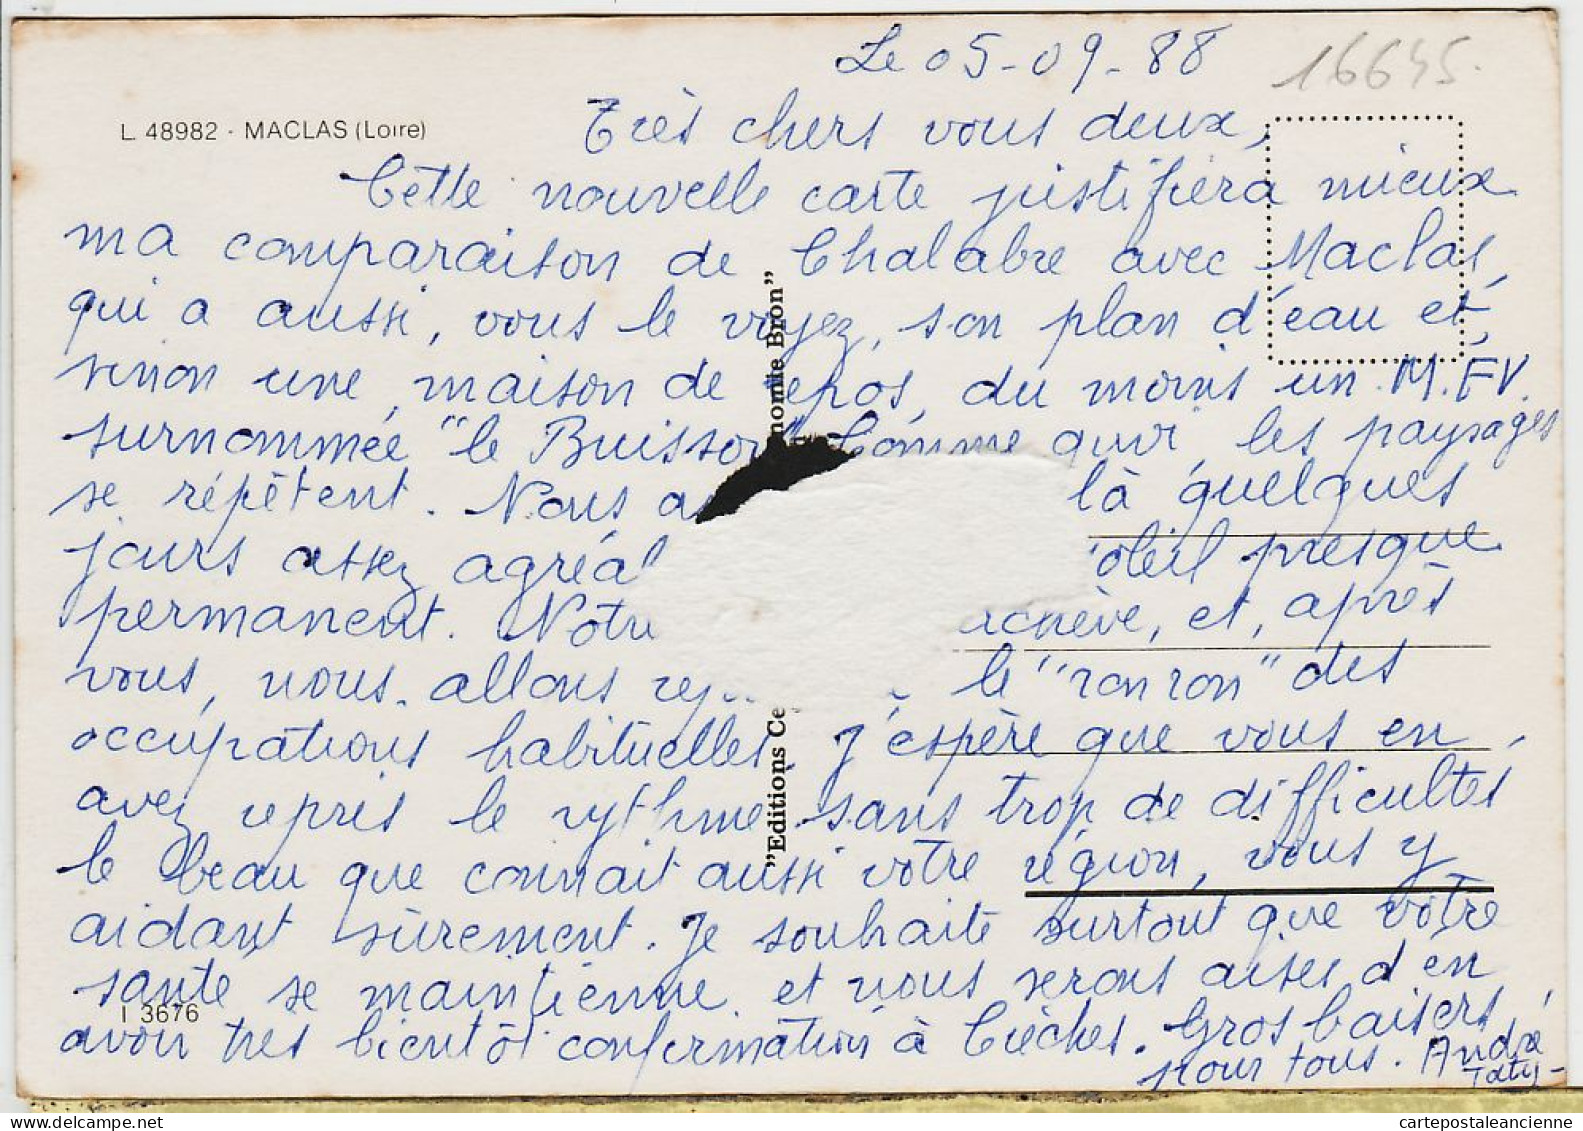 Le 05-09-88
16645.
L 48982 - MACLAS (Loire)
Très chers vous deux,
Cette nouvelle carte justifiera mieux
ma comparaison de Chalabre avec Maclas,
qui a aussi, vous le voyez, son plan d'eau et,
sinon une maison de repos, du moins un M.FV.
surnommée "le Buisson" Comme quoi les paysages
se répètent. Nous a là quelques
jours assez agréal oleil presque
permanent. Notre achève, et, après
vous, nous allons le "ronron" des
occupations habituelles. J'espère que vous en
avez repris le rythme sans trop de difficultés
le beau que connait aussi votre région, vous y
aidant sûrement. Je souhaite surtout que votre
santé se maintienne et nous serons aises d'en
avoir très bientôt confirmation à Crèches. Gros baisers
pour tous. André
Taty
I 3676
"Editions Ce nomie Bron"
cartepostaleancienne